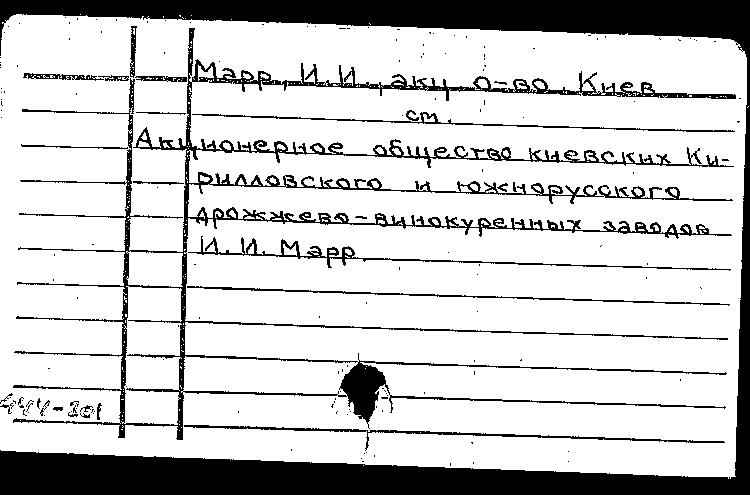 Марр, И.И., акц. о-во. Киев
см.
Акционерное общество киевских Ки-
рилловского и южнорусского
дрожжево-винокуренных заводов
И.И. Марр.